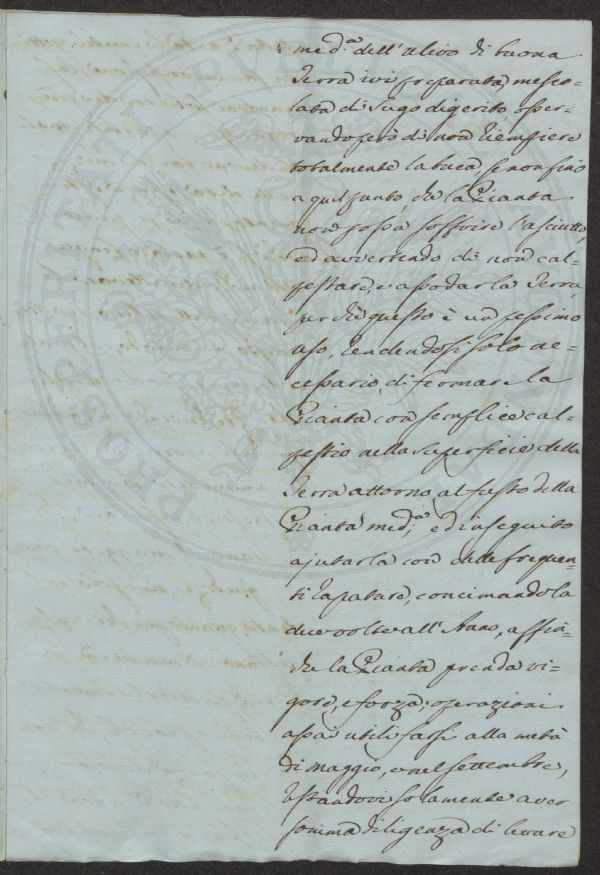 med.ª dell'Ulivo di buona
Terra ivi preparata, mesco-
lata di Sugo digerito, osser-
vando però di non riempiere
totalmente la buca, se non fino
a quel punto, che la Pianta
non possa soffrire l'asciutto,
ed avvertendo di non cal-
pestare, e assodar la Terra,
perchè questo è un pessimo
uso, rendendosi solo ne-
cessario, di fermare la
Pianta con semplice cal-
pestio nella superficie della
Terra attorno al fusto della
Pianta med.ª, ed in seguito
ajutarla con delle frequen-
ti Zapature, concimandola
due volte all'Anno, affin-
chè la Pianta prenda vi-
gore, e forza, operazioni
assai utili farsi alla metà
di Maggio, e nel Settembre,
restandovi solamente aver
somma diligenza di levare
PROSPERITATI PUBLICAE